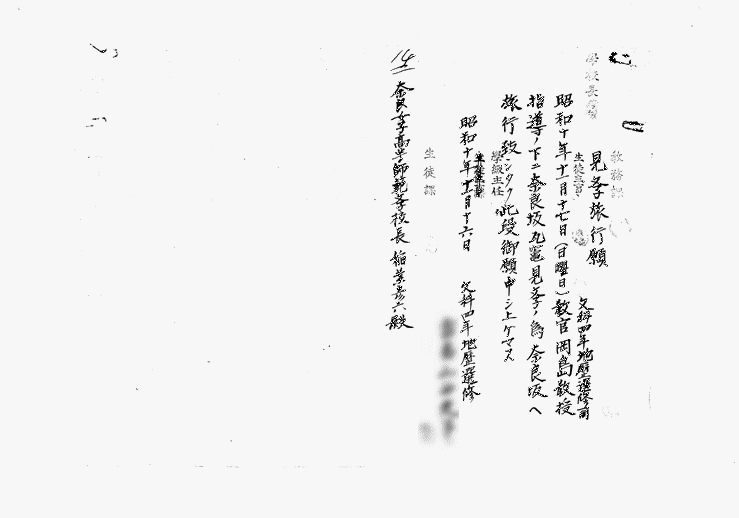 教務課
學校長
見学旅行願
文科四年地歴選修
生徒主事
昭和十年十一月十七日(日曜日)教官岡島教授
指導ノ下ニ奈良坂瓦窯見学ノ為奈良坂ヘ
旅行致シタク此段御願申シ上ゲマス
學級主任
昭和十年十一月十六日
文科四年地歴選修
生徒課
奈良女子高等師範学校長 稲葉彦六殿